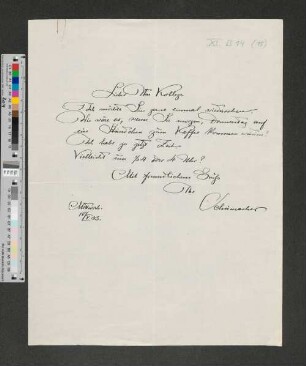 Lieber Herr Kollege
Ich möchte Sie gerne einmal wiedersehen.
Wie wäre es, wenn Sie morgen, Donnerstag auf
ein Stündchen zum Kaffee kommen würden?
Ich habe ja jetzt Zeit.
Vielleicht um ¾ 4 oder 4 Uhr?
Mit freundlichem Gruß
Ihr
Schumacher
Mittwoch